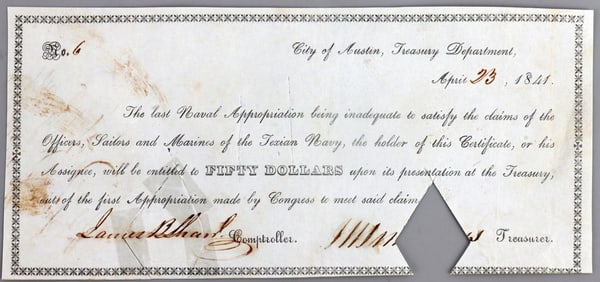 No. 6 City of Austin, Treasury Department,
April 23, 1841.
The last Naval Appropriation being inadequate to satisfy the claims of the
Officers, Sailors and Marines of the Texian Navy, the holder of this Certificate, or his
Assignee, will be entitled to FIFTY DOLLARS upon its presentation at the Treasury,
out of the first Appropriation made by Congress to meet said claim
James B Shaw Comptroller. Treasurer.